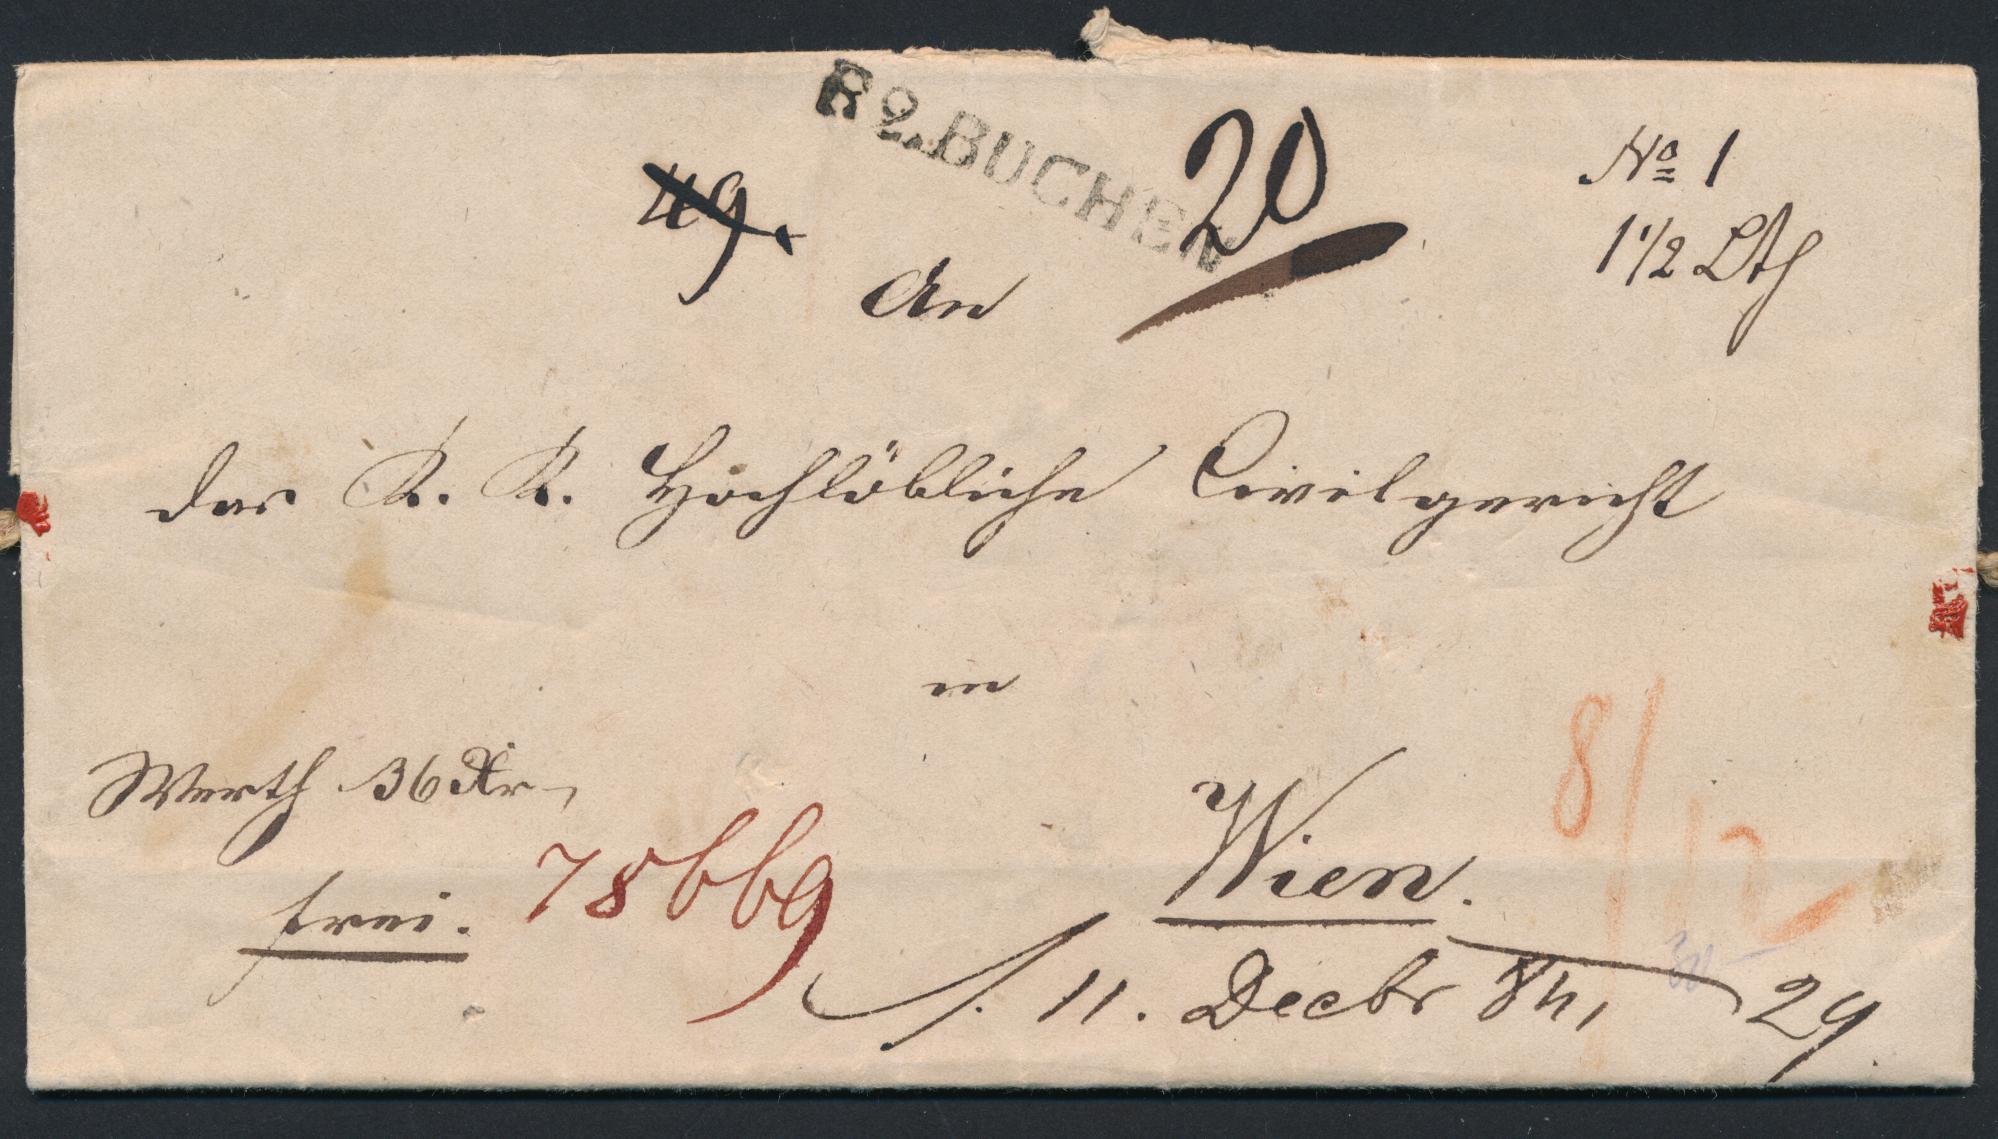 R2.BUCHEN
49. 20 No 1
1 1/2 Lth
An
das K. K. Hochlöbliche Civilgericht
in
Werth 36 Xr
Wien.
8/12
frei. 78669
11. Decbr 29